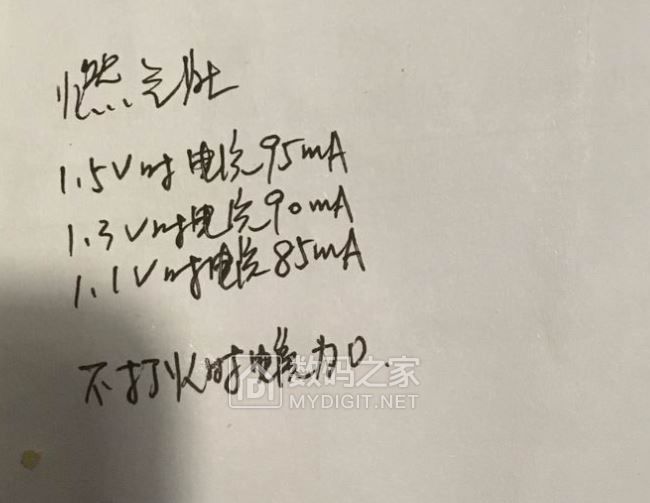 燃气灶
1.5V时电流95mA
1.3V时电流90mA
1.1V时电流85mA
不打火时电流为0.
数码之家
MYDIGIT.NET